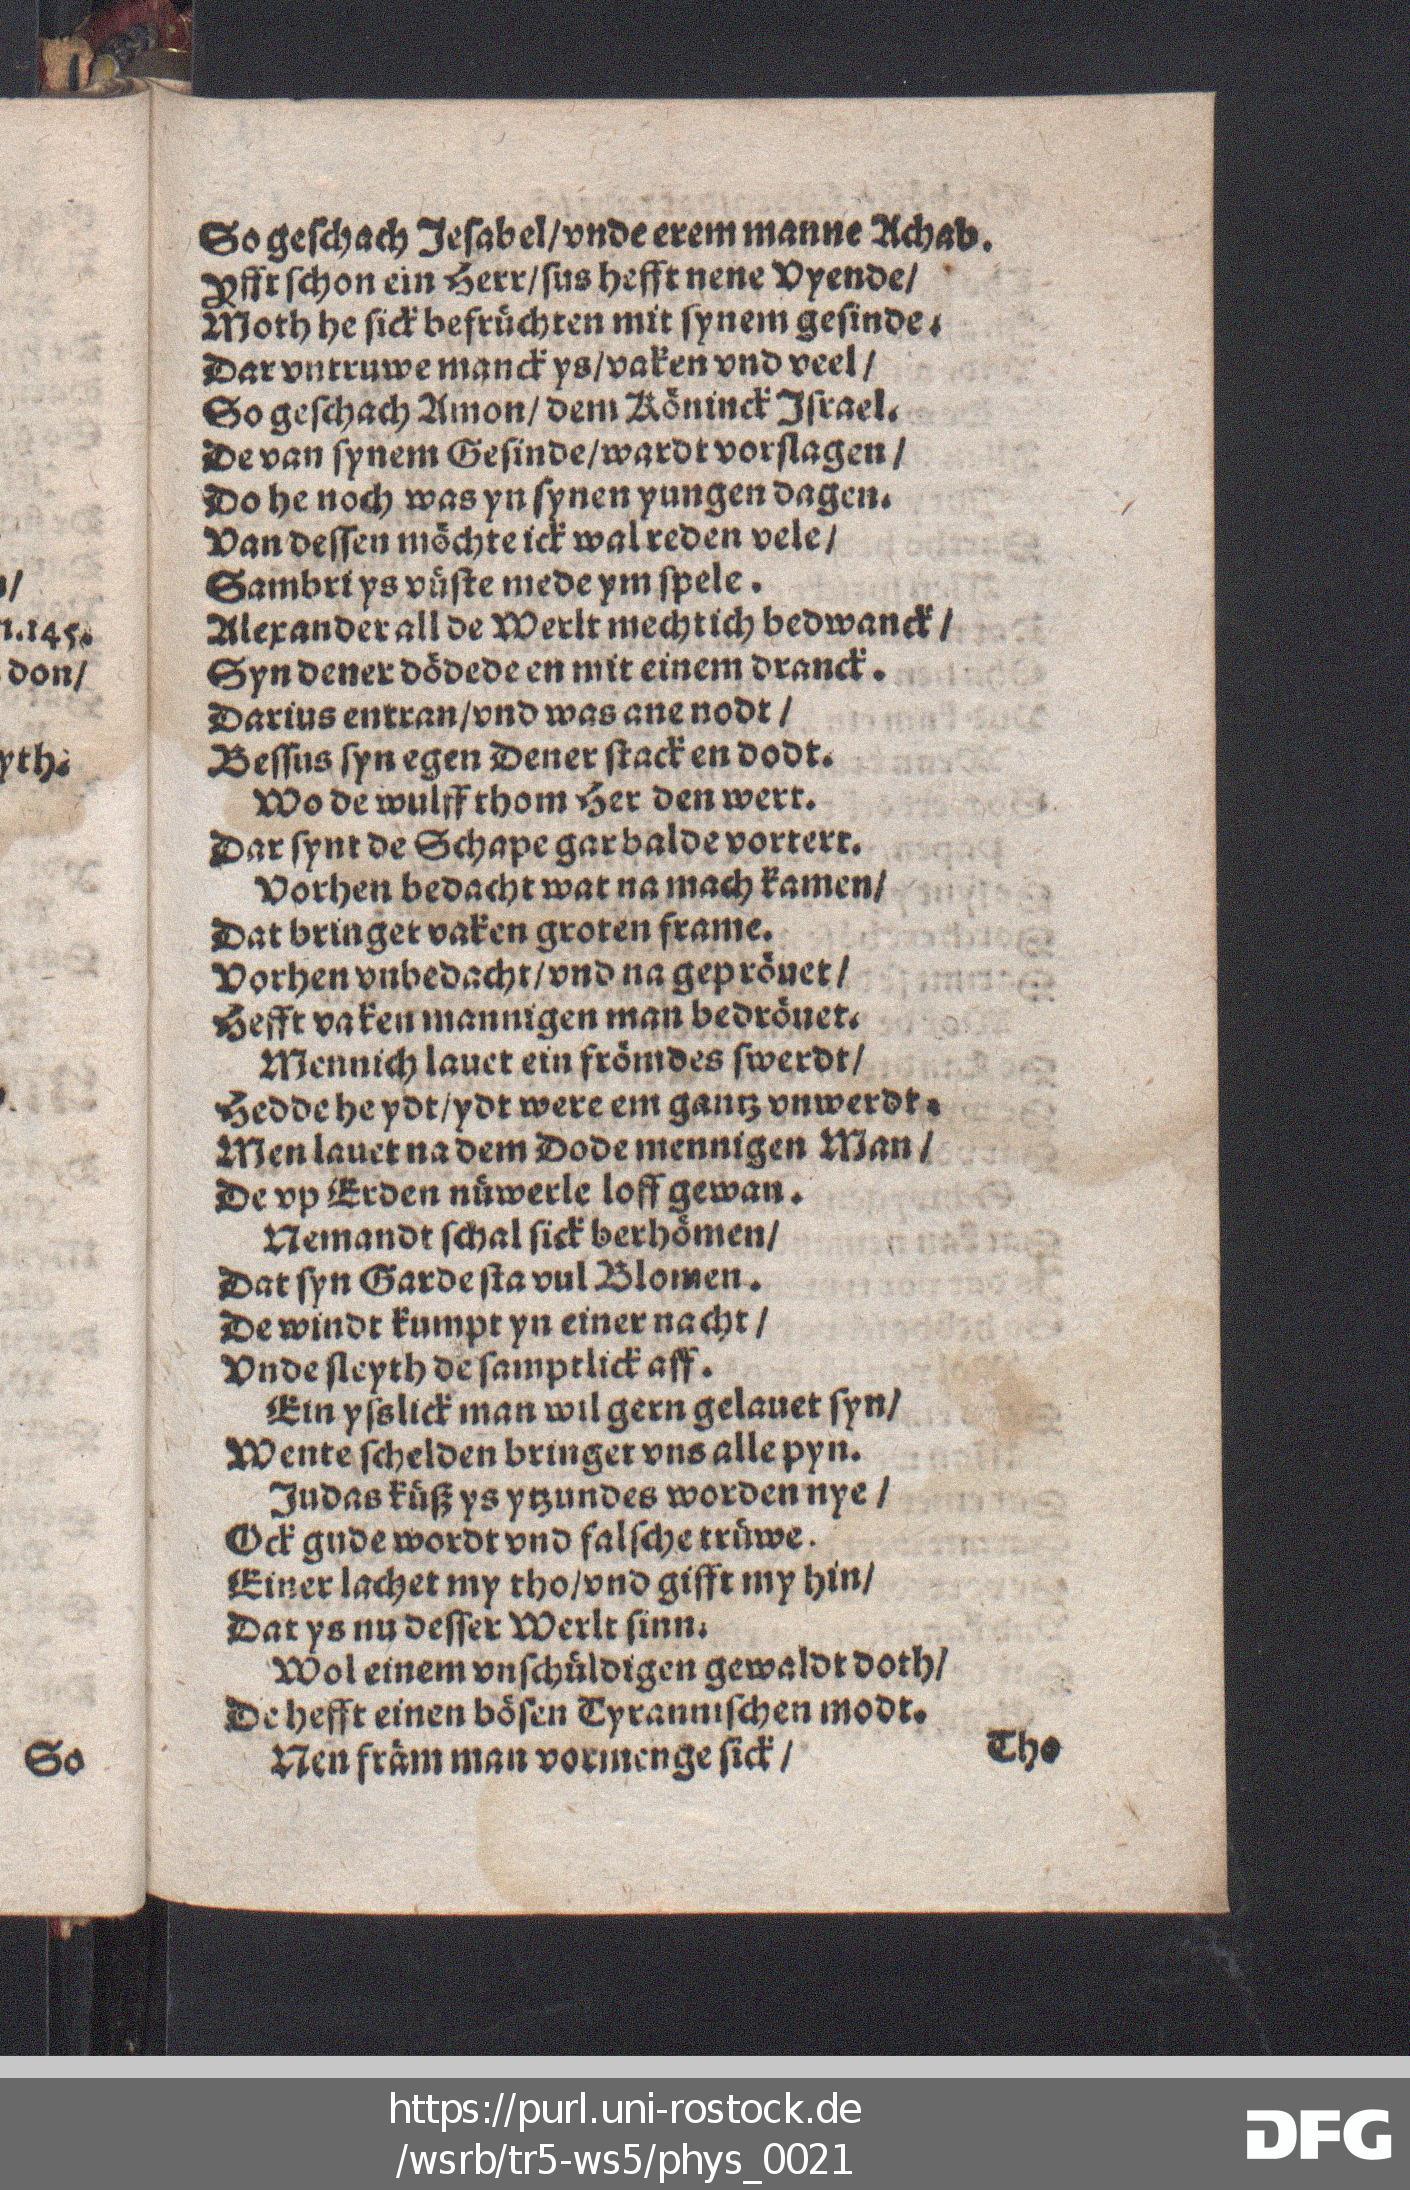 /
n.145.
don/
yth.
So
So geſchach Jeſabel/vnde erem manne Achab.
Yfft ſchon ein Herr/ſus hefft nene Vyende/
Moth he ſick befrüchten mit ſynem geſinde.
Dar vntruwe manck ys/vaken vnd veel/
So geſchach Amon/dem Köninck Jſrael.
De van ſynem Geſinde/wardt vorſlagen/
Do he noch was yn ſynen yungen dagen.
Van deſſen möchte ick wal reden vele/
Sambri ys vüſte mede ym ſpele.
Alexander all de Werlt mechtich bedwanck/
Syn dener dödede en mit einem dranck.
Darius entran/vnd was ane nodt/
Beſſus ſyn egen Dener ſtack en dodt.
Wo de wulff thom Her den wert.
Dar ſynt de Schape gar balde vortert.
Vorhen bedacht wat na mach kamen/
Dat bringet vaken groten frame.
Vorhen vnbedacht/vnd na gepröuet/
Hefft vaken mannigen man bedröuet.
Mennich lauet ein frömdes ſwerdt/
Hedde he ydt/ydt were em gantz vnwerdt.
Men lauet na dem Dode mennigen Man/
De vp Erden nüwerle loff gewan.
Nemandt ſchal ſick berhömen/
Dat ſyn Garde ſta vul Blomen.
De windt kumpt yn einer nacht/
Vnde ſleyth de ſamptlick aff.
Ein yſslick man wil gern gelauet ſyn/
Wente ſchelden bringet vns alle pyn.
Judas küß ys ytzundes worden nye/
Ock gude wordt vnd falſche trüwe.
Einer lachet my tho/vnd gifft my hin/
Dat ys nu deſſer Werlt ſinn.
Wol einem vnſchüldigen gewaldt doth/
De hefft einen böſen Tyranniſchen modt.
Nen främ man vormenge ſick/
Tho
https://purl.uni-rostock.de
/wsrb/tr5-ws5/phys_0021
DFG